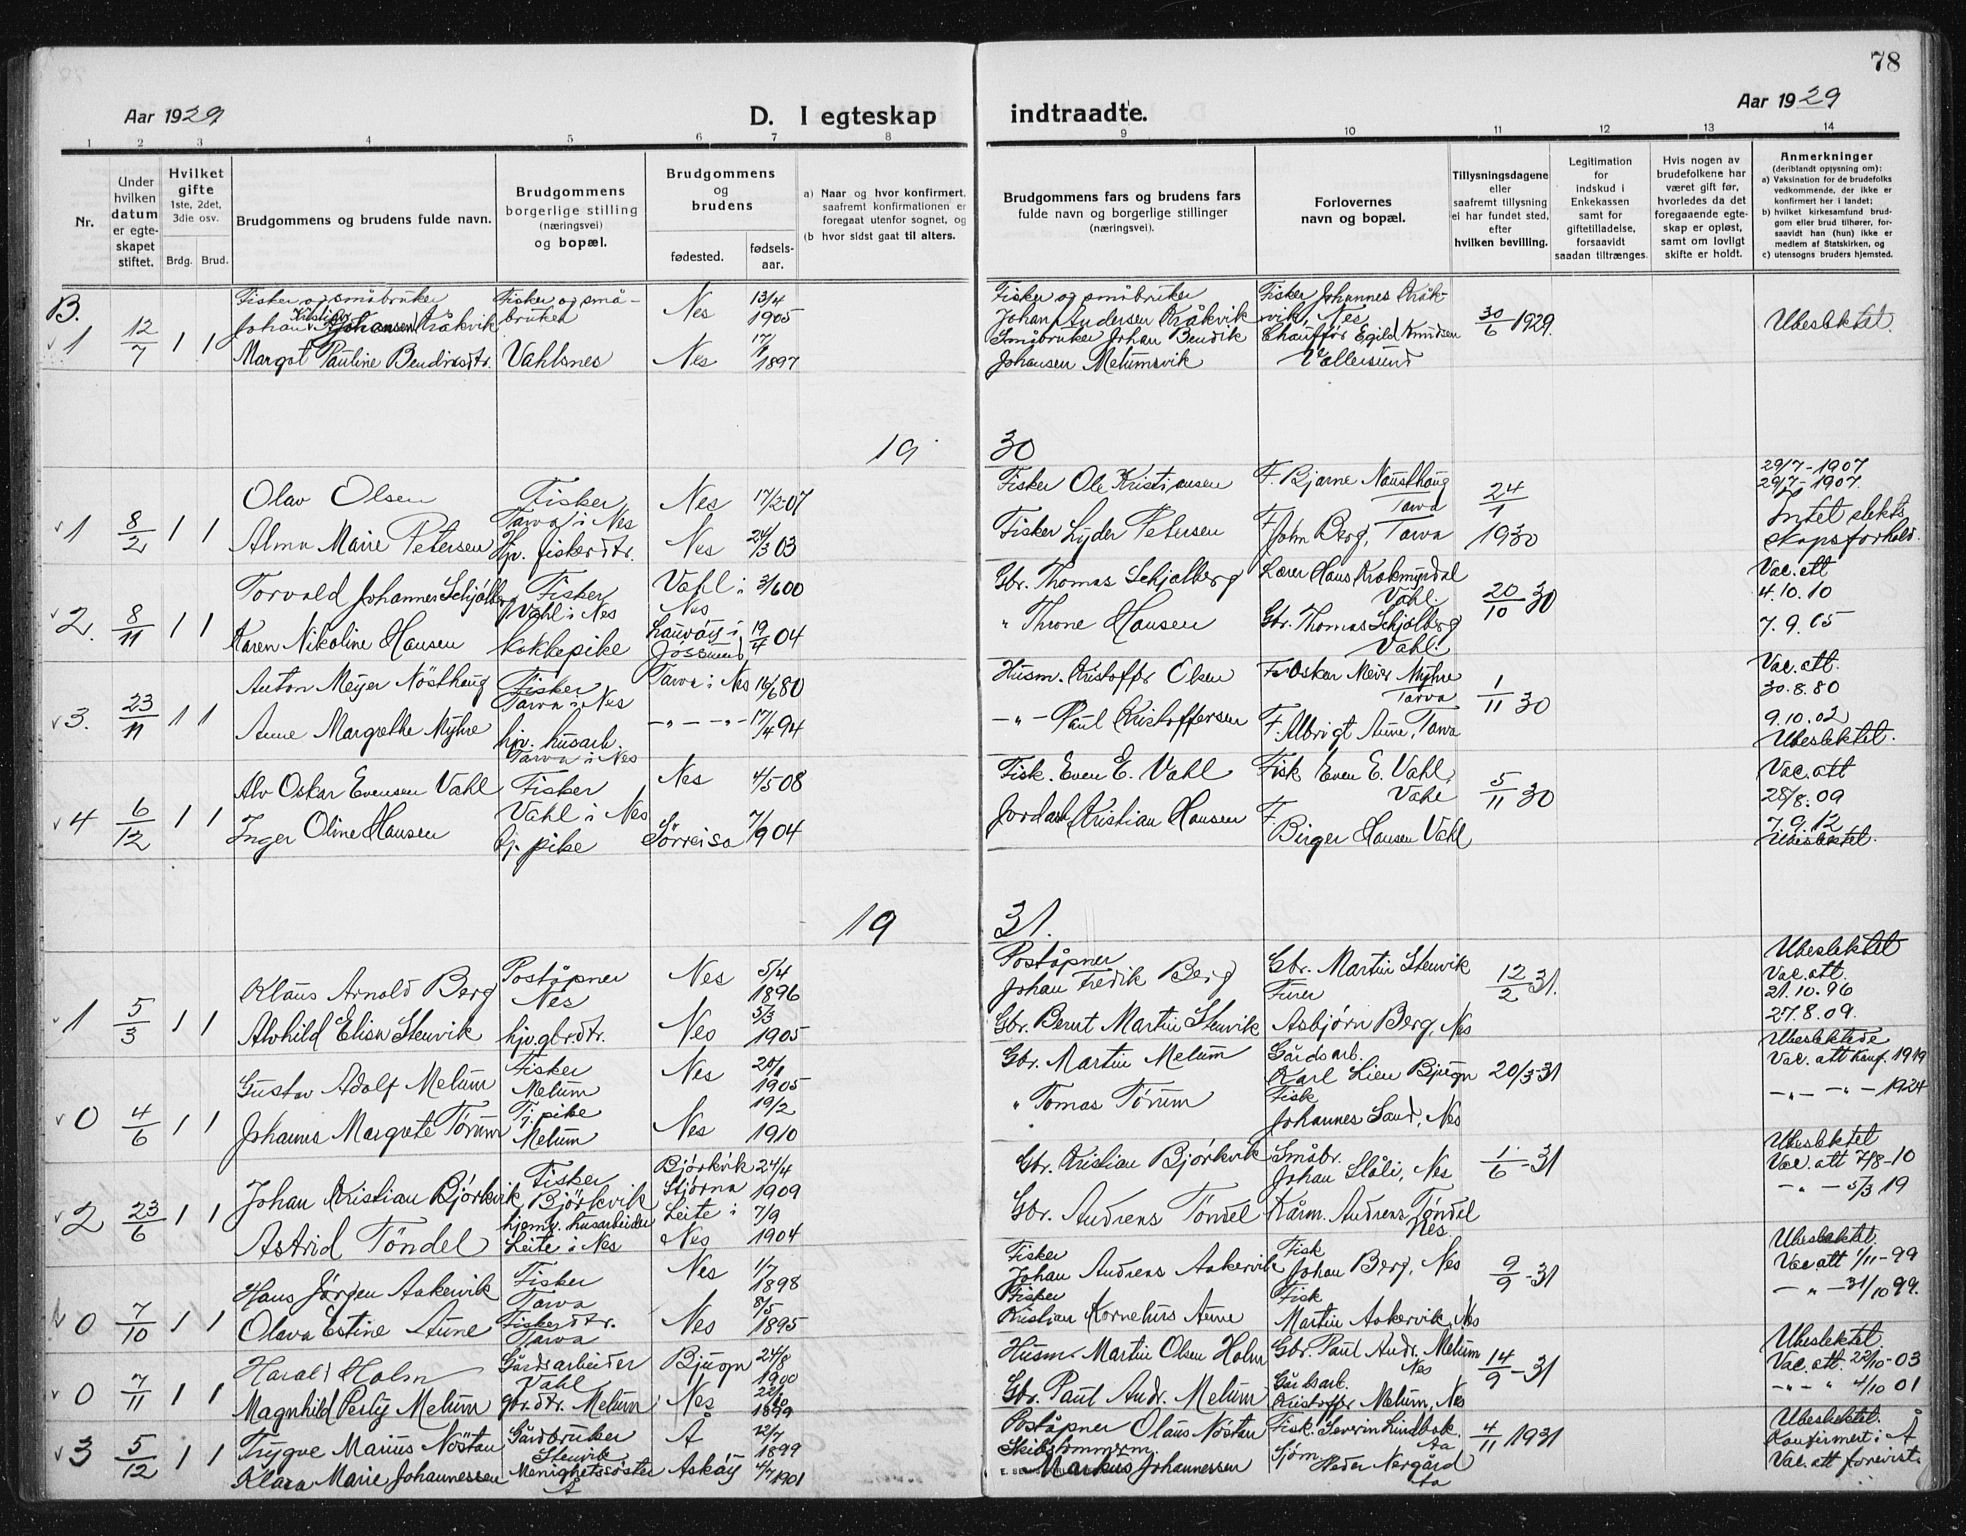 78
Aar 1929
D. I egteskap
indtraadte.
Aar 1929
1 2 3 4 5 6 7 8 9 10 11 12 13 14
Nr.
Under hvilken datum er egte-skapet stiftet.
Hvilket gifte 1ste, 2det, 3die osv.
Brdg. Brud.
Brudgommens og brudens fulde navn.
Brudgommens borgerlige stilling (næringsvei) og bopæl.
Brudgommens og brudens
fødested.
fødsels-aar.
a) Naar og hvor konfirmert, saafremt konfirmationen er foregaat utenfor sognet, og
(b hvor sidst gaat til alters.
Brudgommens fars og brudens fars fulde navn og borgerlige stillinger (næringsvei).
Forlovernes navn og bopæl.
Tillysningsdagene eller saafremt tillysning ei har fundet sted, efter hvilken bevilling.
Legitimation for indskud i Enkekassen samt for giftetilladelse, forsaavidt saadan tiltrænges.
Hvis nogen av brudefolkene har været gift før, hvorledes da det foregaaende egte-skap er opløst, samt om lovligt skifte er holdt.
Anmerkninger (deriblandt opjysning om):
a) Vaksination for de brudefolks vedkommende, der ikke er konfirmert her i landet;
b) hvilket kirkesamfund brud-gom eller brud tilhører, for-saavidt han (hun) ikke er medlem af Statskirken, og
c) utensogns bruders hjemsted.
B.
Fisker og småbruker Fisker og små-bruker Nes 13/4 1905
1 12/7 1 1 Johan Kristian Johansen Kråkvik
Margot Pauline Bendiksdtr. Vahlsnes Nes 17/ 1897
Fisker og småbruker Johan Andersen Kråkvik
Fisker Johannes Kråk-vik, Nes 30/6 1929. Ubeslektet.
Småbruker Johan Bendik Johansen Melumsvik
Chauffør Egild Knudsen Vallersund
1930
1 8/2 1 1 Olav Olsen Fisker Tarva i Nes Nes 17/2-07
Alma Marie Petersen Hjv. fiskerdtr. Nes 24/3 03
Fisker Ole Kristiansen F. Bjarne Nausthaug Tarva 24/1 1930
Fisker Lyder Petersen F. John Berg, Tarva
29/7-1907
29/7-1907.
Intet slekts skapsforhold.
2. 8/11 1 1 Torvald Johannes Schjølberg Fisker Vahl i Nes Vahl i Nes 3/6 00
Karen Nikoline Hansen Kokkepike Lauvøy i Jøssund 19/4 04
Gbr. Thomas Schjølberg Lærer Hans Krokmyrdal Vahl. 20/10-30
" Throne Hansen Gbr. Thomas Schjølberg Vahl.
Vac. att
4.10.10
7.9.05
3. 23/11 1 1 Anton Meyer Nösthaug Fisker Tarva i Nes Tarva i Nes 16/6 80
Anne Margrethe Myhre hjv. husarb. Tarva i Nes -"- -"- 17/4 94
Husm. Kristoffer Olsen F. Oskar Meier Myhre Tarva 1/11 30
-"- Paul Kristoffersen F. Albrigt Aune, Tarva
Vac. att.
30.8.80
9.10.02
Ubeslektet.
4 6/12 1 1 Alv Oskar Evensen Vahl Fisker Vahl i Nes Nes 4/5 08
Inger Oline Hansen Tj. pike Sørreisa 7/9 04
Fisk. Even E. Vahl Fisk Even E. Vahl, Vahl 5/11 30
Jordar Kristian Hansen F. Birger Hansen Vahl
Vac. att
28/8.09
7.9.12
Ubeslektet.
1931.
1 5/3 1 1 Klaus Arnold Berg Poståpner Nes Nes 5/4 1896
Alvhild Elisa Stenvik hjv. gbr.dtr. Nes 5/3 1905
Poståpner Johan Fredik Berg Gbr. Martin Stenvik 12/2-31.
Gbr. Bernt Martin Stenvik Furer Asbjørn Berg, Nes
Ubeslektet
Vac. att.
21.10.96
27.8.09.
0 4/6 1 1 Gustav Adolf Melum Fisker Melum Nes 20/1 1905
Johanna Margrete Tørum Tj. pike Melum Nes 19/2 1910
Gbr. Martin Melum Gårdsarb. Karl Lien Bjugn 20/3-31
" Tomas Tørum Fisk Johannes Sand, Nes
Ubeslektede
Vac. att Konf. 1919
-"- -"- 1924
2 23/6 1 1 Johan Kristian Bjørkvik Fisker Bjørkvik Bjørkvik Stjørna 24/4 1909
Astrid Töndel hjemv. husarbeider Leite i Nes Leite i Nes 7/9 1904
Gbr. Kristian Bjørkvik Småbr. Johan Slåli, Nes 1/6-31
Gbr. Andreas Töndel Kårm. Andreas Töndel Nes.
Ubeslektet
Vac. att 7/8-10
-"- 5/3 19
0 7/10 1 1 Hans Jørgen Aakervik Fisker Tarva Nes 1/7 1898
Olava Estine Aune Fiskerdtr. Tarva Nes 8/5 1895
Fisker Johan Andreas Aakervik Fisk Johan Berg, Nes 9/9-31
Fisker Kristian Kornelius Aune Fisk Martin Aakervik, Nes
Ubeslektet
Vac. att 1/11-99
-"- 31/10 99.
0 7/11 1 1 Harald Holm Gårdsarbeider Vahl Bjugn 24/8 1900
Magnhild Petly Melum gbr.dtr. Melum Nes 22/ 1899
Husm. Martin Olsen Holm Gbr. Paul Andr. Melum Nes 14/9-31
Gbr. Paul Andr. Melum Gårdsarb. Kristoffer Melum, Nes
Ubeslektet.
Vac. att. 22/10-03
-"-"- 4/10 01
3 5/12 1 1 Trygve Marius Nöstan Gårdbruker Stenvik Å 22/7 1899
Klara Marie Johannessen Menighetssöster Å Askøy 4/7 1901
Poståpner Olaus Nöstan Fisk. Severin Lindbak. Aa 4/11 1931
Skibstømmerm. Markus Johannessen Sjøm Peder Nergård Aa
Ubeslektet.
Konfirmert i Å
Vac. att forevist.